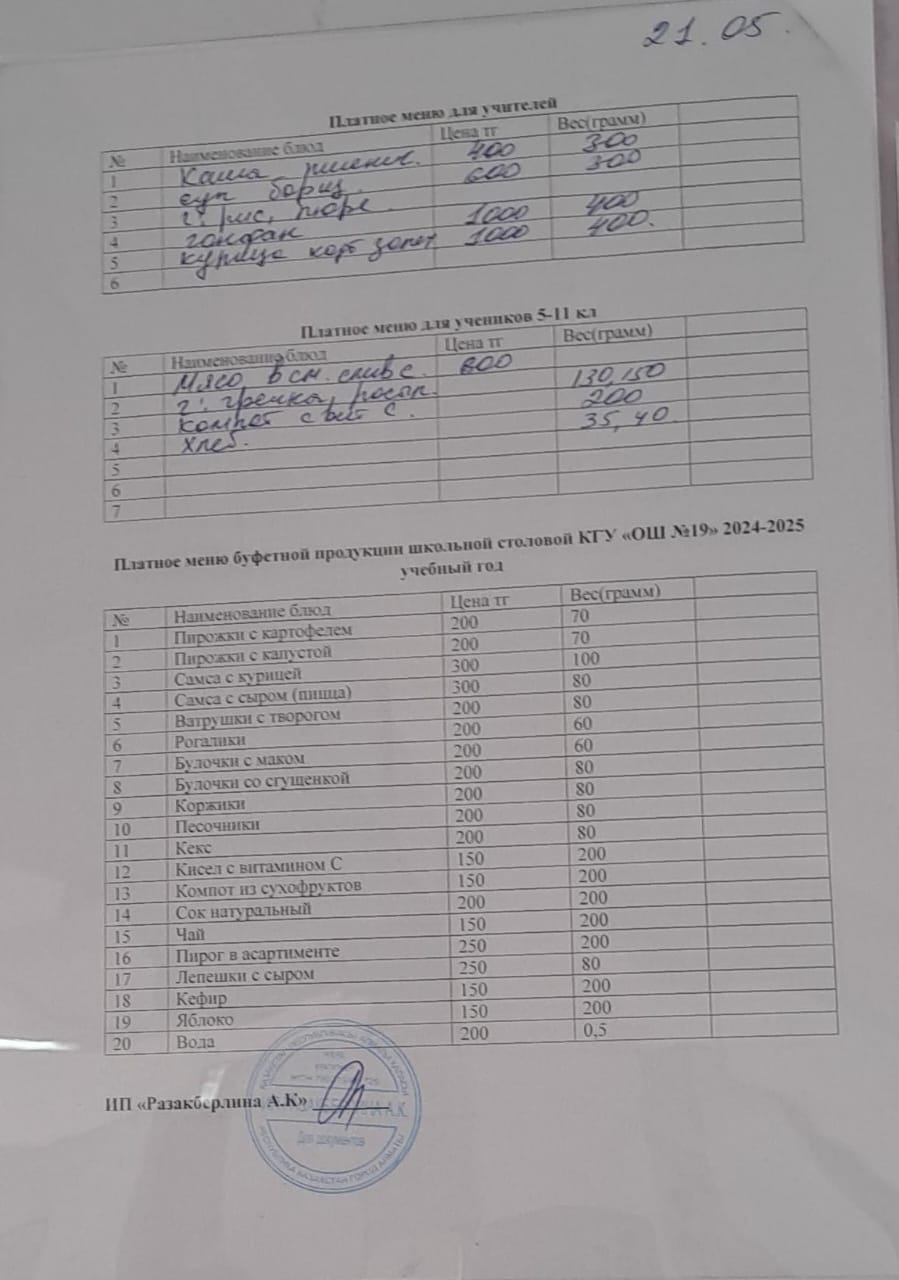 21.05.
Платное меню для учителей
№ Наименование блюд Цена тг Вес(грамм)
1 Каша пшенич. 400 300
2 суп борщ. 600 300
3 г: рис, пюре.
4 гонфан 1000 400
5 курица карт запеч 1000 400.
6
Платное меню для учеников 5-11 кл
№ Наименование блюд Цена тг Вес(грамм)
1 Мясо в см. сливе.
2 г: гречка, 130,150
3 компот с вит С. 200
4 хлеб. 35,40.
5
6
7
Платное меню буфетной продукции школьной столовой КГУ «ОШ №19» 2024-2025
учебный год
№ Наименование блюд Цена тг Вес(грамм)
1 Пирожки с картофелем 200 70
2 Пирожки с капустой 200 70
3 Самса с курицей 300 100
4 Самса с сыром (пицца) 300 80
5 Ватрушки с творогом 200 80
6 Рогалики 200 60
7 Булочки с маком 200 60
8 Булочки со сгущенкой 200 80
9 Коржики 200 80
10 Песочники 200 80
11 Кекс 200 80
12 Кисел с витамином С 150 200
13 Компот из сухофруктов 150 200
14 Сок натуральный 200 200
15 Чай 150 200
16 Пирог в асартименте 250 200
17 Лепешки с сыром 250 80
18 Кефир 150 200
19 Яблоко 150 200
20 Вода 200 0,5
ИП «Разакберлина А.К»
Для документов
РЕСПУБЛИКА КАЗАХСТАН ГОРОД АЛМАТЫ